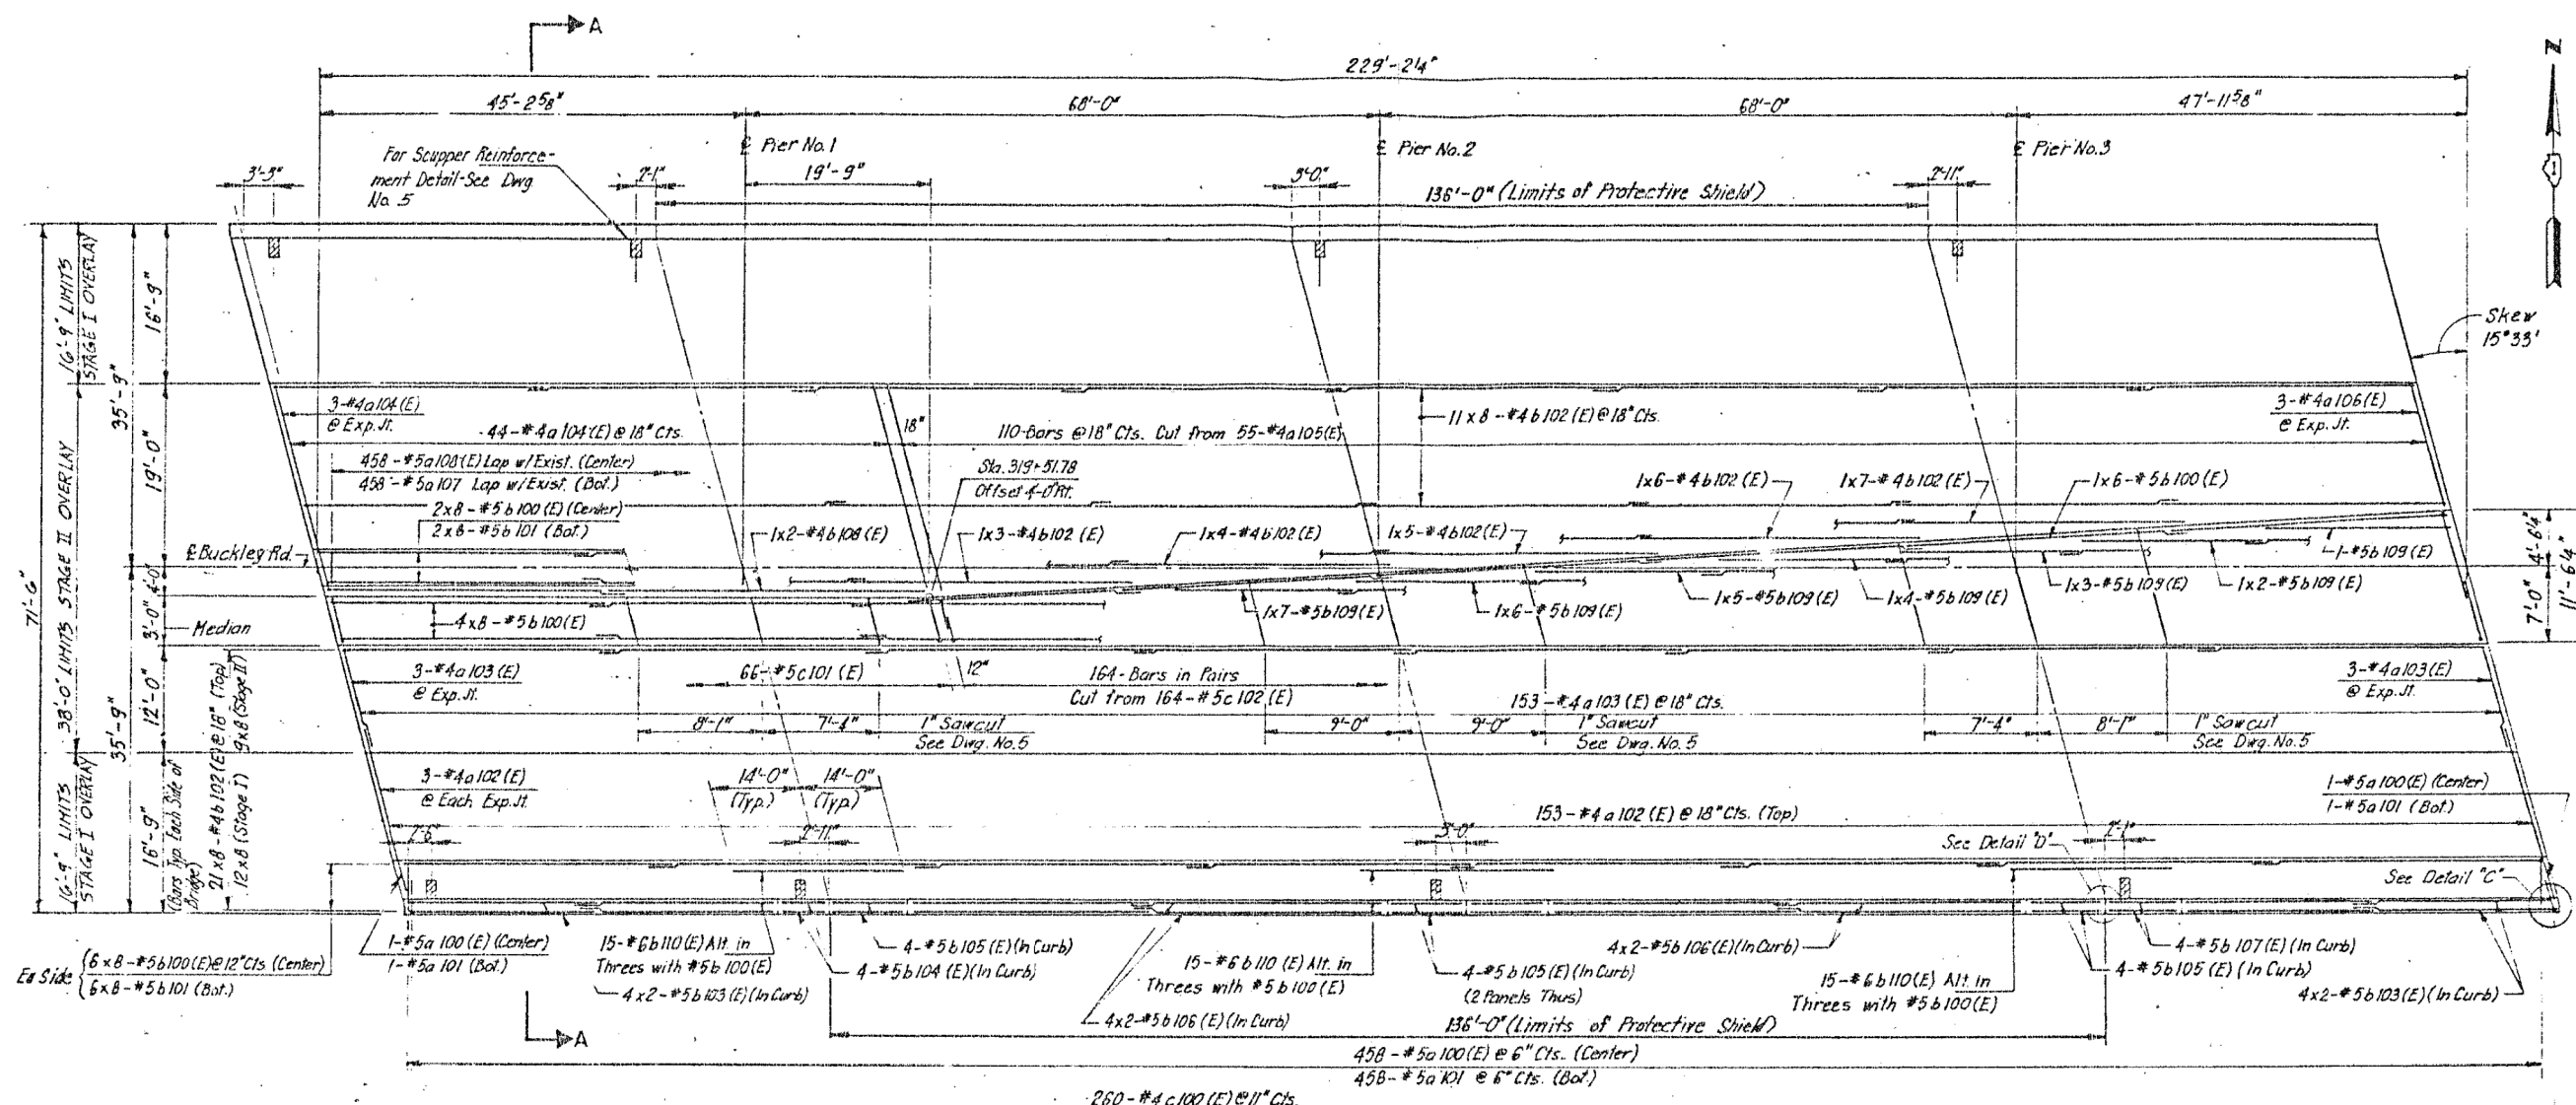 A
229'-2¼"
45'-2⅝"
68'-0"
68'-0"
47'-11⅝"
N
℄ Pier No.1
℄ Pier No.2
℄ Pier No.3
For Scupper Reinforce-
ment Detail-See Dwg
No. 5
3'-3"
2'-1"
19'-9"
3'-0"
2'-11"
136'-0" (Limits of Protective Shield)
1
Skew
15°33'
71'-6"
16'-9" LIMITS
STAGE I OVERLAY
38'-0" LIMITS STAGE II OVERLAY
16'-9" LIMITS
STAGE I OVERLAY
35'-9"
35'-9"
16'-9"
19'-0"
4'-0"
3'-0"
12'-0"
16'-9"
3-#4a104(E)
@ Exp. Jt.
44-#4a104(E) @ 18" Cts.
18"
110-Bars @ 18" Cts. Cut from 55-#4a105(E)
11 x 8 -#4b102(E) @ 18" Cts.
3-#4a106(E)
@ Exp. Jt.
458-#5a108(E) Lap w/Exist. (Center)
458-#5a107 Lap w/Exist. (Bot.)
Sta. 319+51.78
Offset 4'-0" Rt.
2x8-#5b100(E) (Center)
2x8-#5b101 (Bot.)
1x6-#4b102(E)
1x7-#4b102(E)
1x6-#5b100(E)
1x2-#4b108(E)
1x3-#4b102(E)
1x4-#4b102(E)
1x5-#4b102(E)
1-#5b109(E)
℄ Buckley Rd.
1x3-#5b109(E)
1x2-#5b109(E)
4'-6¼"
7'-0"
11'-6¼"
Median
4x8-#5b100(E)
1x7-#5b109(E)
1x6-#5b109(E)
1x5-#5b109(E)
1x4-#5b109(E)
3-#4a103(E)
@ Exp. Jt.
66-#5c101(E)
12"
164-Bars in Pairs
Cut from 164-#5c102(E)
153-#4a103(E) @ 18" Cts.
3-#4a103(E)
@ Exp. Jt.
8'-1"
7'-4"
1" Sawcut
See Dwg. No.5
9'-0"
9'-0"
1" Sawcut
See Dwg. No.5
7'-4"
8'-1"
1" Sawcut
See Dwg. No.5
(Bars Typ. Each Side of
Bridge)
21x8-#4b102(E) @ 18" (Top)
12x8 (Stage I) 9x8 (Stage II)
3-#4a102(E)
@ Each Exp. Jt.
14'-0"
(Typ.)
14'-0"
(Typ.)
153-#4a102(E) @ 18" Cts. (Top)
1-#5a100(E) (Center)
1-#5a101 (Bot.)
2'-11"
3'-0"
2'-1"
See Detail "D"
See Detail "C"
Ea Side
6x8-#5b100(E) @ 12" Cts (Center)
6x8-#5b101 (Bot.)
1-#5a100(E) (Center)
1-#5a101 (Bot.)
15-#6b110(E) Alt. in
Threes with #5b100(E)
4x2-#5b103(E) (In Curb)
4-#5b105(E) (In Curb)
4-#5b104(E) (In Curb)
4x2-#5b106(E) (In Curb)
15-#6b110(E) Alt. in
Threes with #5b100(E)
4-#5b105(E) (In Curb)
(2 Panels Thus)
4x2-#5b106(E) (In Curb)
15-#6b110(E) Alt. in
Threes with #5b100(E)
4-#5b107(E) (In Curb)
4-#5b105(E) (In Curb)
4x2-#5b103(E) (In Curb)
A
136'-0" (Limits of Protective Shield)
458-#5a100(E) @ 6" Cts. (Center)
458-#5a101 @ 6" Cts. (Bot.)
260-#4c100(E) @ 11" Cts.